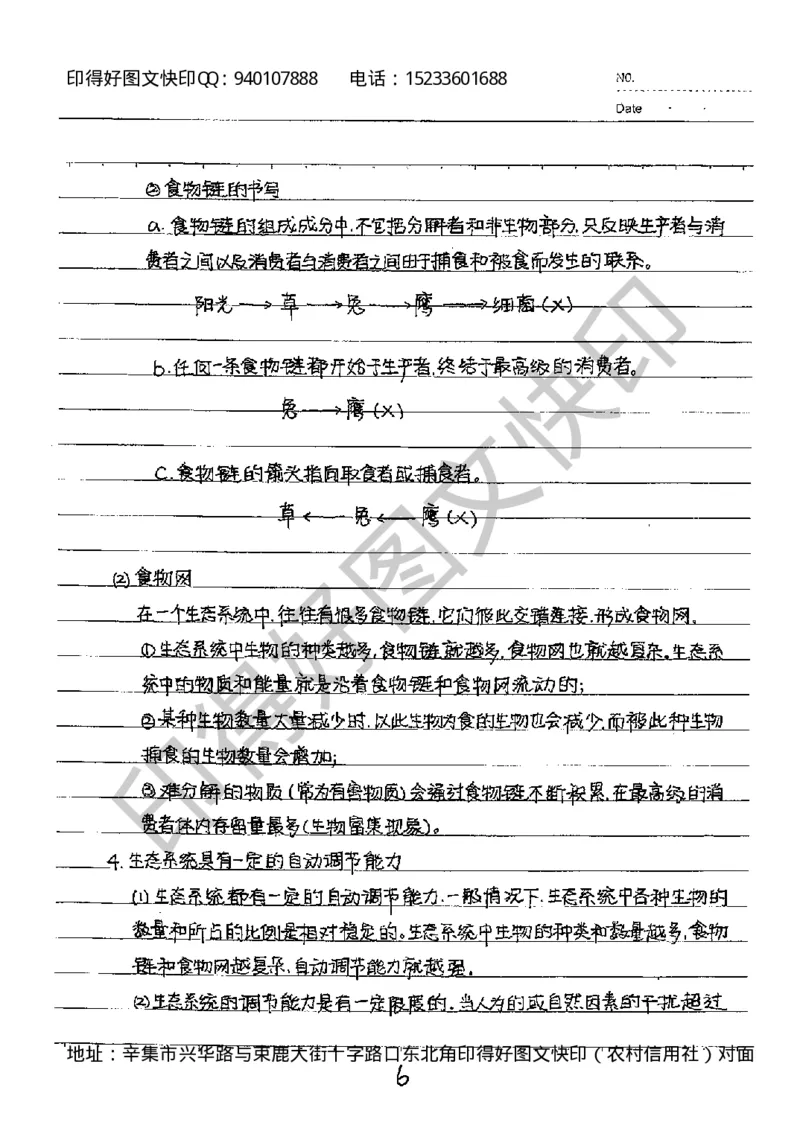 印得好图文快印QQ：940107888 电话：15233601688
NO.
Date
③食物链的书写
a.食物链的组成成分中,不包括分解者和非生物部分,只反映生产者与消
费者之间以及消费者与消费者之间由于捕食和被食而发生的联系。
阳光→草→兔→鹰→细菌(×)
b.任何一条食物链都开始于生产者,终结于最高级的消费者。
兔→鹰(×)
C.食物链的箭头指向取食者或捕食者。
草←兔←鹰(×)
(2)食物网
在一个生态系统中,往往有很多食物链,它们彼此交错连接,形成食物网。
①生态系统中生物的种类越多,食物链就越多,食物网也就越复杂。生态系
统中的物质和能量就是沿着食物链和食物网流动的;
②某种生物数量大量减少时,以此生物为食的生物也会减少,而被此种生物
捕食的生物数量会增加;
③难分解的物质(常为有害物质)会通过食物链不断积累,在最高级的消
费者体内存留量最多(生物富集现象)。
4.生态系统具有一定的自动调节能力
(1)生态系统都有一定的自动调节能力.一般情况下,生态系统中各种生物的
数量和所占的比例是相对稳定的。生态系统中生物的种类和数量越多,食物
链和食物网越复杂,自动调节能力就越强.
(2)生态系统的调节能力是有一定限度的.当人为的或自然因素的干扰超过
地址：辛集市兴华路与束鹿大街十字路口东北角印得好图文快印（农村信用社）对面
6
印得好图文快印